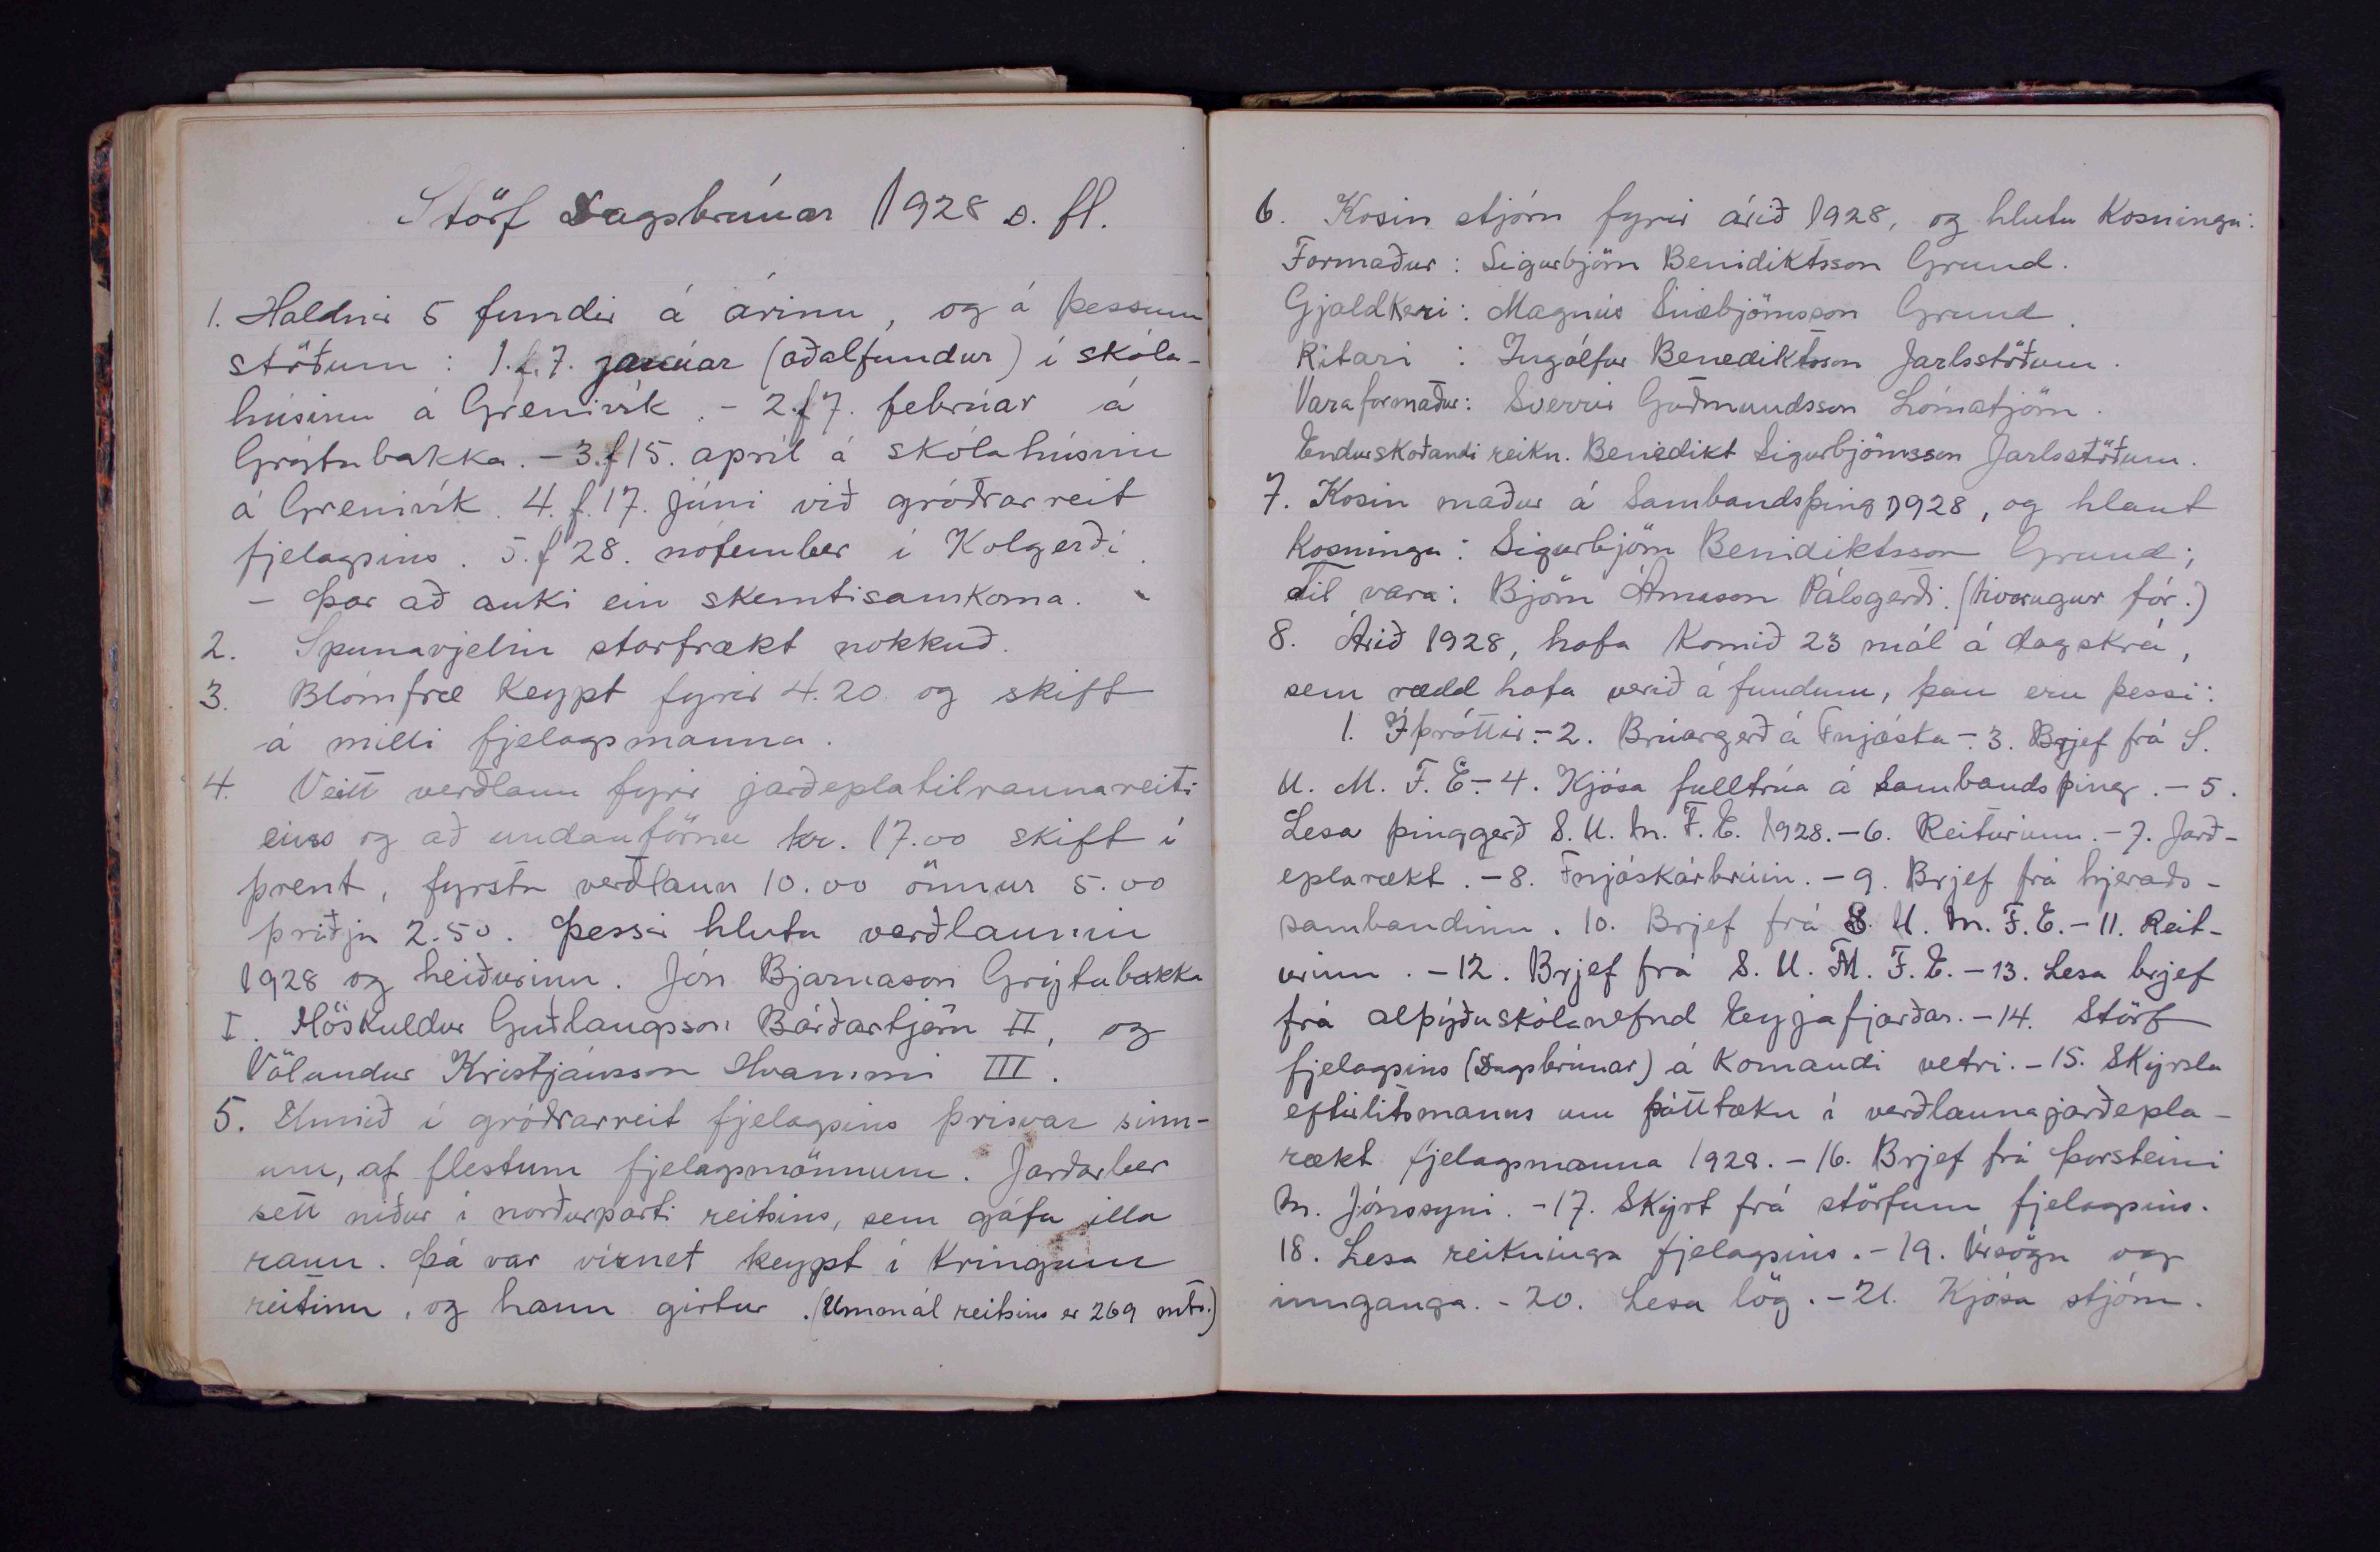 Störf Dagsbrúnar 1928 s. fl.
1. Haldnir 5 fundir á árinu, og á þessum
stöðum: 1. f. 7. janúar (aðalfundur) í skóla-
húsinu á Grenivík. - 2. f 7. febrúar á
Grýtubakka. - 3. f 15. apríl á skólahúsinu
á Grenivík. 4. f. 17. júni við gróðrarreit
fjelagsins. 5. f 28. nófember í Kolgerði.
- Þar að auki ein skemtisamkoma.
2. Spunavjelin starfrækt nokkuð.
3. Blómfræ keypt fyrir 4.20 og skift
á milli fjelagsmanna.
4. Veitt verðlaun fyrir jarðeplatilraunareiti
eins og að undanförnu kr. 17.00 skift í
þrent, fyrstu verðlaun 10.00 önnur 5.00
þriðju 2.50. Þessir hlutu verðlaunin
1928 og heiðurinn. Jón Bjarnason Grýtubakka
I. Höskuldur Guðlaugsson Bárðartjörn II, og
Völundur Kristjánsson Hvammi III.
5. Unnið í gróðrarreit fjelagsins þrisvar sinn-
um, af flestum fjelagsmönnum. Jarðarber
sett niður í norðurparti reitsins, sem gáfu illa
raun. Þá var vírnet keypt í kringum
reitinn, og hann girtur. (Ummál reitsins er 269 mtr.)
6. Kosin stjórn fyrir árið 1928, og hlutu kosningu:
Formaður: Sigurbjörn Benidiktsson Grund.
Gjaldkeri: Magnús Snæbjörnsson Grund.
Ritari: Ingólfur Benediktsson Jarlsstöðum.
Varaformaður: Sverrir Guðmundsson Lómatjörn.
Endurskoðandi reikn. Benedikt Sigurbjörnsson Jarlsstöðum.
7. Kosin maður á Sambandsþing 1928, og hlaut
kosningu: Sigurbjörn Benidiktsson Grund;
til vara: Björn Árnason Pálsgerði. (hvorugur fór.)
8. Árið 1928, hafa komið 23 mál á dagskrá,
sem rædd hafa verið á fundum, þau eru þessi:
1. Íþróttir. - 2. Brúargerð á Fnjóská - 3. Brjef frá S.
U. M. F. E. - 4. Kjósa fulltrúa á Sambandsþing. - 5.
Lesa þinggerð S. U. M. F. E. 1928. - 6. Reiturinn. - 7. Jarð-
eplarækt. - 8. Fnjóskárbrúin. - 9. Brjef frá hjeraðs-
sambandinu. 10. Brjef frá S. U. M. F. E. - 11. Reit-
urinn. - 12. Brjef frá S. U. M. F. E. - 13. Lesa brjef
frá alþýðuskólanefnd Eyjafjarðar. - 14. Störf
fjelagsins (Dagsbrúnar) á komandi vetri. - 15. Skýrsla
eftirlitsmanns um þátttöku í verðlaunajarðepla-
rækt fjelagsmanna 1928. - 16. Brjef frá Þorsteini
M. Jónssyni. - 17. Skýrt frá störfum fjelagsins.
18. Lesa reikninga fjelagsins. - 19. Úrsögn og
innganga. - 20. Lesa lög. - 21. Kjósa stjórn.